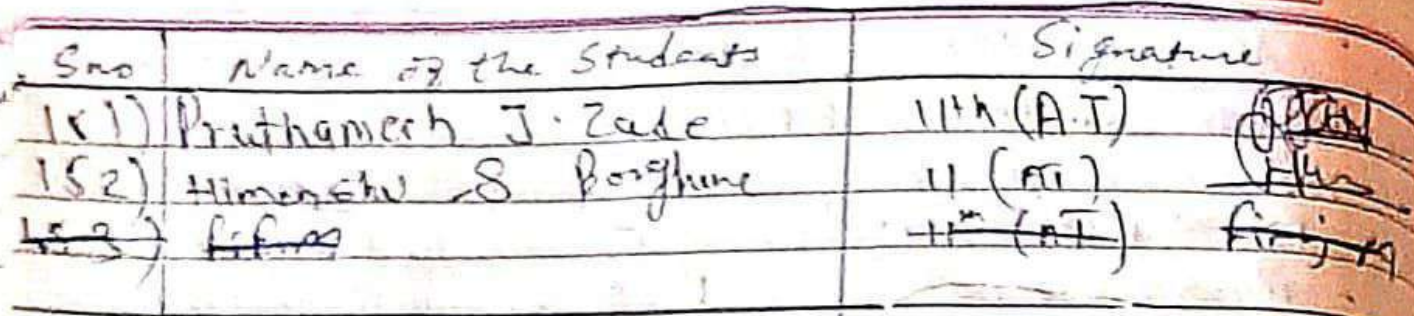 Sno Name of the Students Signature
151) Pruthamesh J. Zade 11th (A.T)
152) Himanshu S Borghune 11 (AT)
153) 11th (AT)